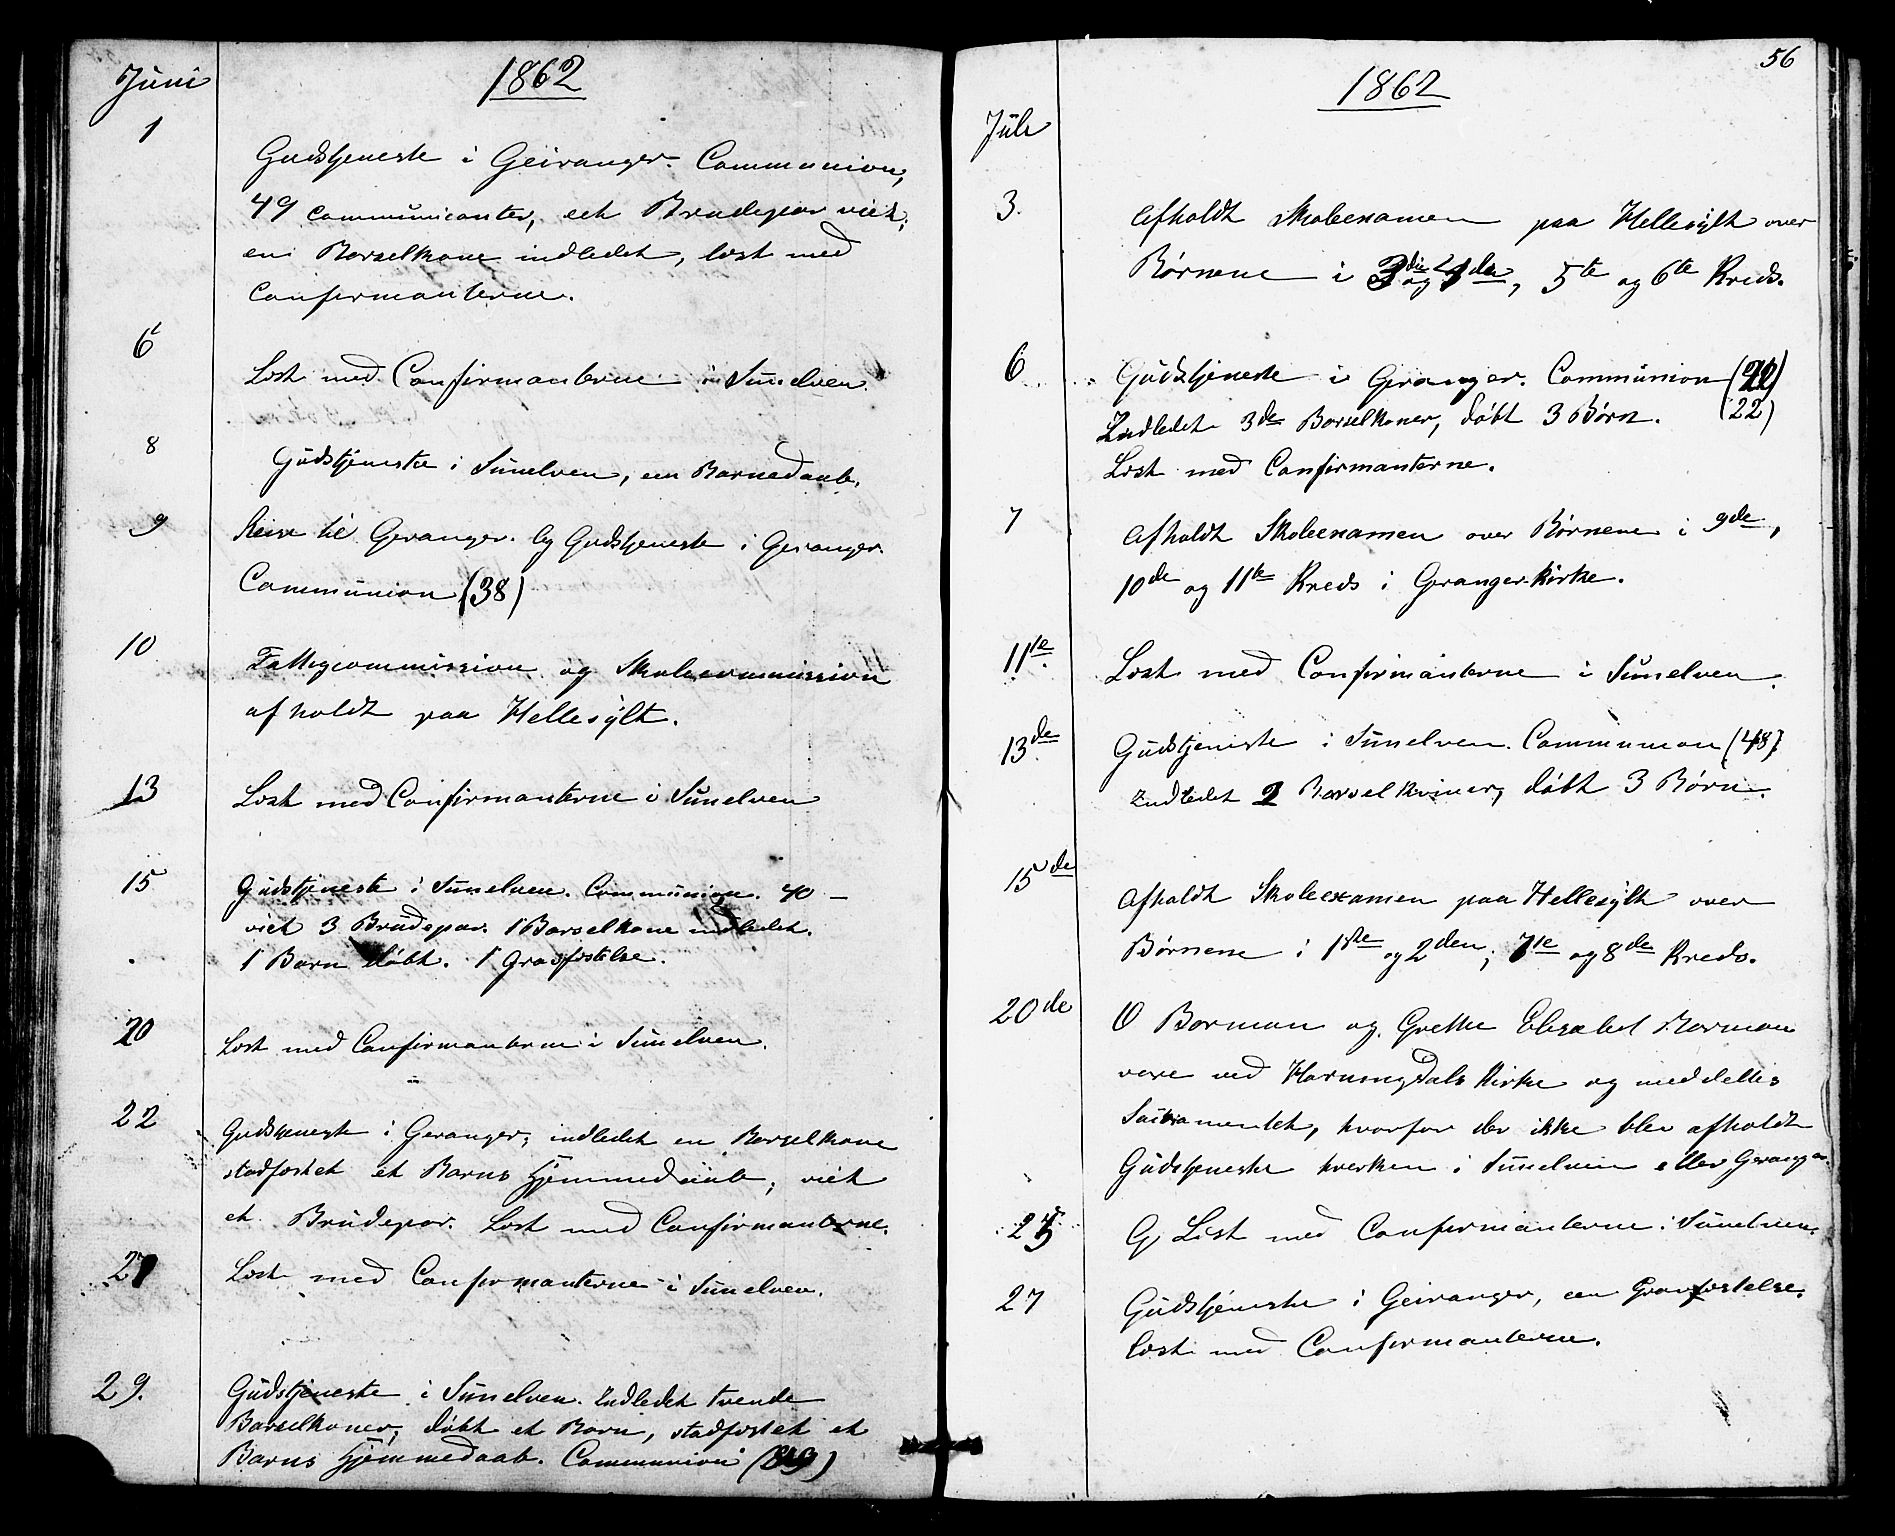 Juni
1862
1
Gudstjeneste i Geiranger. Communion,
49 communicanter, eet Brudepar viet,
en Barselkone indledet, læst med
Confirmanterne.
6
Læst med Confirmanterne i Sunelven.
8
Gudstjeneste i Sunelven, een Barnedaab.
9
Reise til Geranger. Og Gudstjeneste i Geranger.
Communion (38)
10
Fattigcommission og Skolecommission
afholdt paa Hellesylt.
13
Læst med Confirmanterne i Sunelven
15
Gudstjeneste i Sunelven. Communion. 40 –
viet 3 Brudepar. 1 Barselkone indledet.
1 Barn døbt. 1 Gravfæstelse.
20
Læst med Confirmanterne i Sunelven.
22
Gudstjeneste i Geranger; indledet en Barselkone
stadfæstet et Barns Hjemmedaab, viet
et Brudepar. Læst med Confirmanterne.
27
Læst med Confirmanterne i Sunelven.
29.
Gudstjeneste i Sunelven. Indledet tvende
Barselkoner, døbt et Barn, stadfæstet et
Barns Hjemmedaab. Communion
56
1862
Juli
3.
Afholdt Skoleexamen paa Hellesylt over
Børnene i 3die og 4de, 5te og 6te Kreds.
6
Gudstjeneste i Geranger. Communion
Indledet 3de Barselkoner, døbt 3 Børn. (22)
Læst med Confirmanterne.
7
Afholdt Skoleexamen over Børnene i 9de,
10de og 11te Kreds i Geranger Kirke.
11te
Læst med Confirmanterne i Sunelven.
13de
Gudstjeneste i Sunelven. Communion (48)
Indledet 2 Barselkoner, døbt 3 Børn.
15de
Afholdt Skoleexamen paa Hellesylt over
Børnene i 1ste og 2den, 7de og 8de Kreds.
20de
O Barman og Grethe Elisabet Barman
vare ved Horningdals Kirke og meddeltes
Sacramentet, hvorfor der ikke blev afholdt
Gudstjeneste hverken i Sunelven eller Geranger.
25
Læst med Confirmanterne i Sunelven.
27
Gudstjeneste i Geiranger, een Gravfæstelse.
Læst med Confirmanterne.